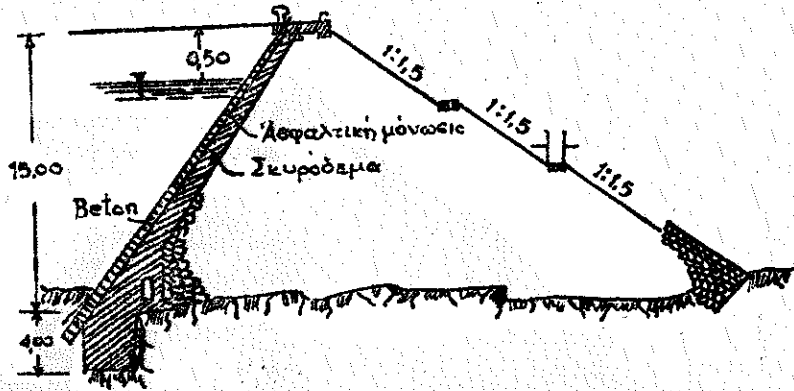 0,50
1:1,5
1:1,5
1:1,5
Ἀσφαλτική μόνωσις
Σκυρόδεμα
15,00
Beton
4,00